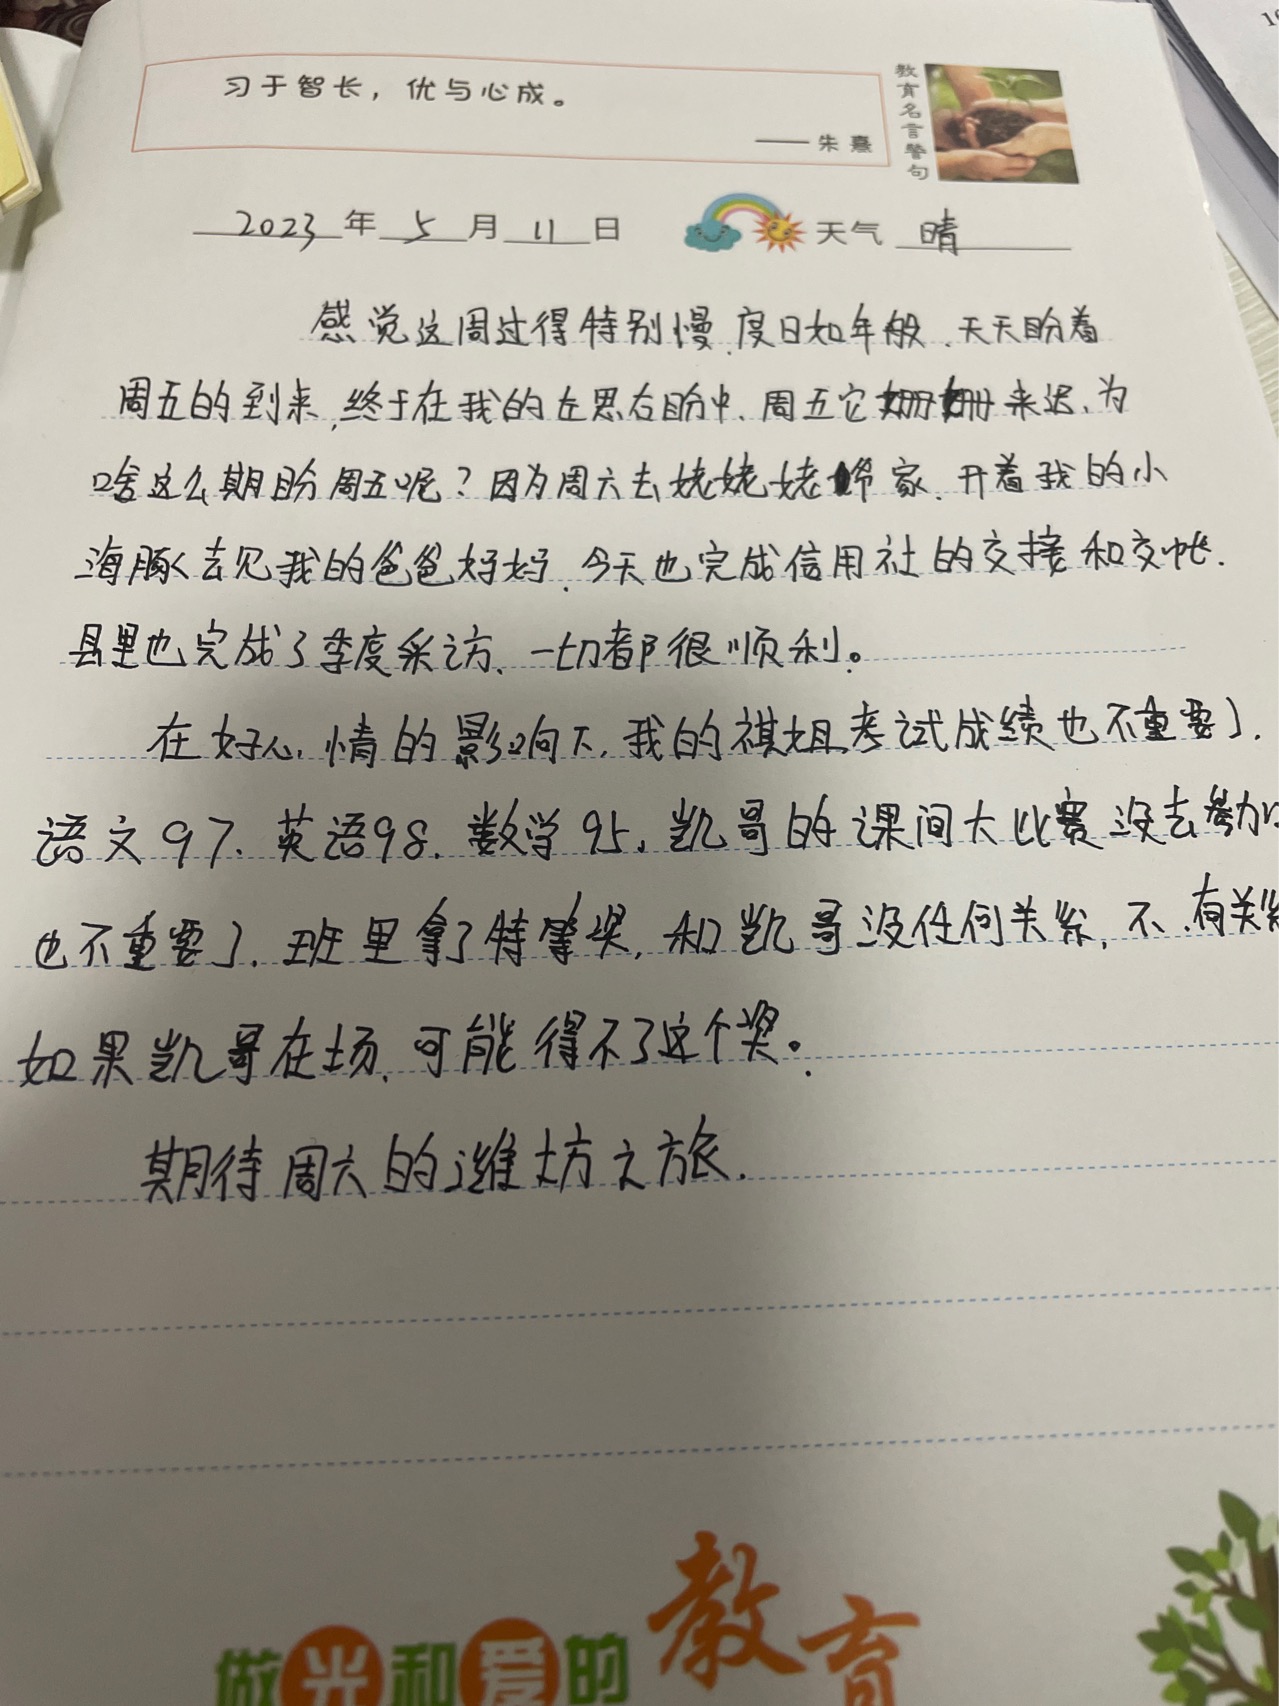 习于智长，优与心成。
——朱熹
教育名言警句
2023年5月11日 天气 晴
感觉这周过得特别慢，度日如年般，天天盼着
周五的到来，终于在我的左思右盼中，周五它姗姗来迟，为
啥这么期盼周五呢？因为周六去姥姥姥爷家，开着我的小
海豚去见我的爸爸妈妈，今天也完成信用社的交接和交帐.
县里也完成了季度采访，一切都很顺利。
在好心情的影响下，我的祺姐考试成绩也不重要了.
语文97、英语98、数学95，凯哥的课间大比赛没去参加
也不重要了，班里拿了特等奖，和凯哥没任何关系，不，有关系
如果凯哥在场，可能得不了这个奖。
期待周六的潍坊之旅.
做光和爱的教育